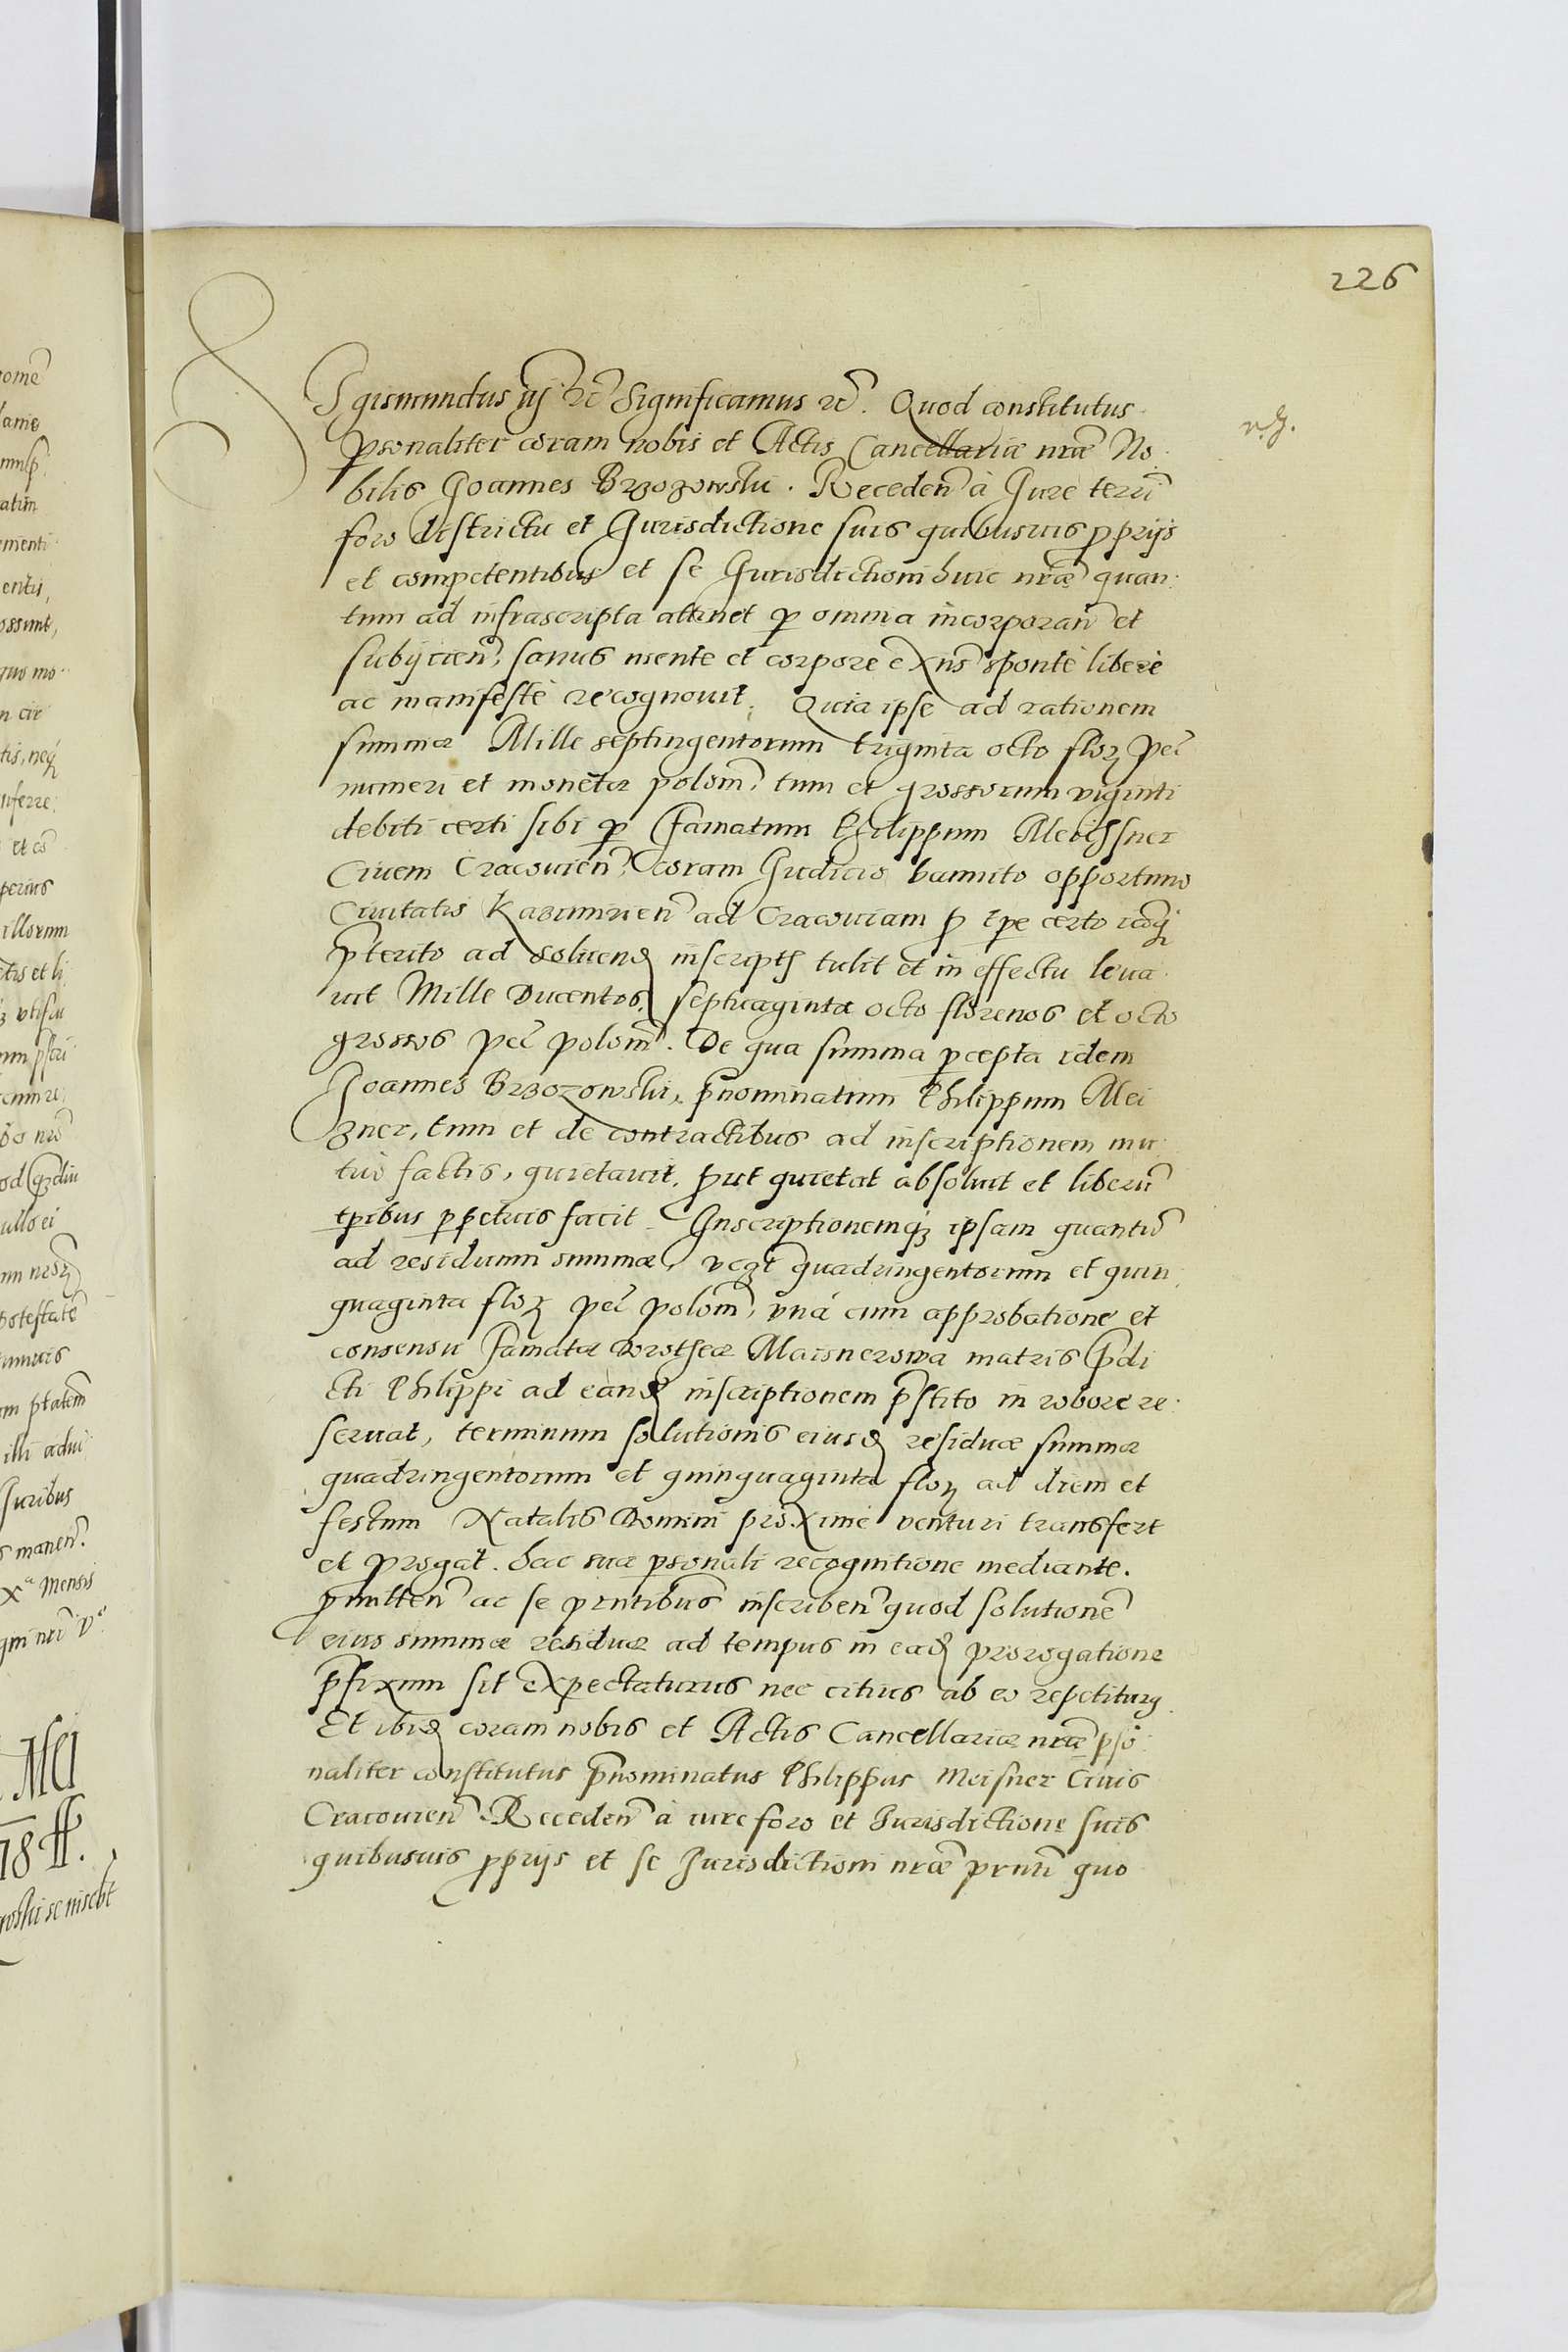 226
Sigismundus iij etc̃ Significamus etc̃. Quod constitutus
p̱sonaliter coram nobis et Actis Cancellariæ nr̃æ No
bilis Joannes Brzozowski. Receden̄ à Jure terr̄i
foro districtu et Jurisdictione suis quibusuis p̱prijs
et competentibus et se Jurisdictioni huic nr̃æ quan
tum ad infrascripta attinet p̱ omnia incorporan̄ et
subijcien̄, sanus mente et corpore exñs spontè liberè
ac manifestè recognouit. Quia ipse ad rationem
summæ Mille septingentorum triginta octo floꝝ pec̄
numeri et monetæ polon̄, tum et grossorum viginti
debiti certi sibi p̱ famatum Philippum Meichsner
Ciuem Cracouien̄, coram Judicio bannito opportuno
Ciuitatis Kazimirien̄ ad Cracouiam p̱ tp̄e certo
p̄terito ad soluend inscript tulit et in effectu leua
uit Mille Ducentos septuaginta octo florenos et octo
grossos pec̄ polon̄. De qua summa p̱cepta idem
Joannes Brzozowski, p̄nominatum Philippum Mei
zner, tum et de contractibus ad inscriptionem mu
tuò factis, quietauit. p̱ut quietat absoluit et liberū
tp̱ribus p̱petuis facit. Inscriptionemq̃ ipsam quantū
ad residuum summæ, vcz̄t quadringentorum et quin
quaginta floꝝ pec̄ polon̄, vnà cum approbatione et
consensu famatæ Dorotheæ Maisnerowa matris p̄di
cti Philippi ad eand inscriptionem p̄stito in robore re
seruat, terminum solutionis eiusd residuæ summæ
quadringentorum et quinquaginta floꝝ ad diem et
festum Natalis Domini proximè venturi transfert
et p̱rogat. hac sua p̱sonali recognitione mediante.
p̱mitten̄ ac se p̱ntibus inscriben̄ quod solutionē
eius summæ residuæ ad tempus in ead prorogatione
p̄fixum sit expectaturus nec citius ab eo repetiturꝰ
Et ibid coram nobis et Actis Cancellariæ nr̃æ p̱so
naliter constitutus p̄nominatus Philippus Meisner Ciuis
Cracouien̄. Receden̄ à iure foro et Jurisdictione suis
quibusuis p̱prijs et se Jurisdictioni nr̃æ pr̄nti quo